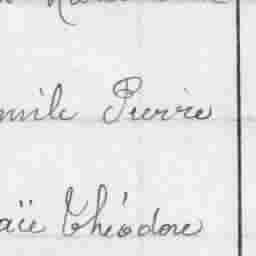 mile Pierre
aïe Théodore